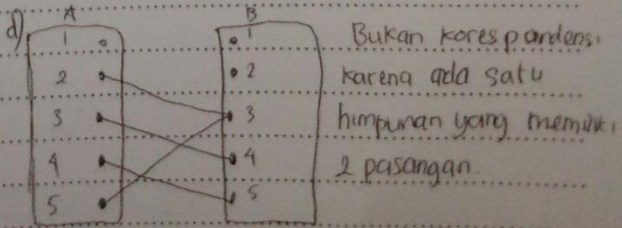 d) A B
1 1
2 2
3 3
4 4
5 5
Bukan korespondensi
karena ada satu
himpunan yang memiliki
2 pasangan.